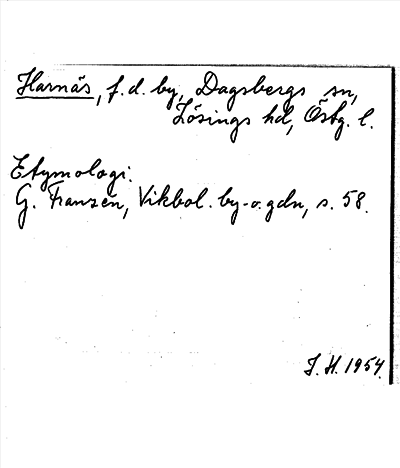 Harnäs, f.d. by, Dagsbergs sn,
Lösings hd, Östg. l.
Etymologi.
G. Franzén, Vikbol. by- o. gdn, s. 58.
J. H. 1954.